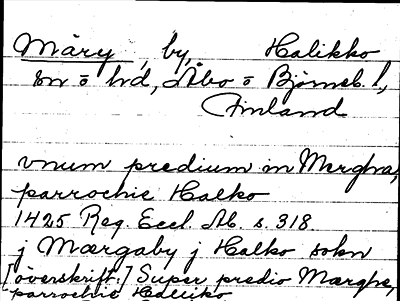 Märy, by, Halikko
sn o hd, Åbo o Björneb. l.,
Finland
vnum predium in Mergha,
parrochie Halko
1425 Reg. Eccl. Ab. s. 318.
j Mærgaby j Halko sokn
[överskrift:] Super predio Mærghe,
parrochie Haliko